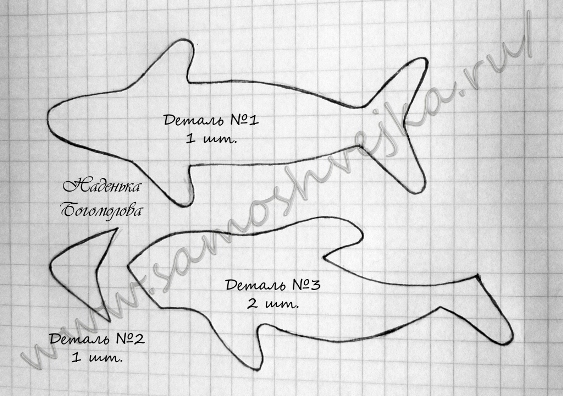 Деталь №1
1 шт.
Наденька
Богомолова
Деталь №3
2 шт.
Деталь №2
1 шт.
www.samoshvejka.ru/